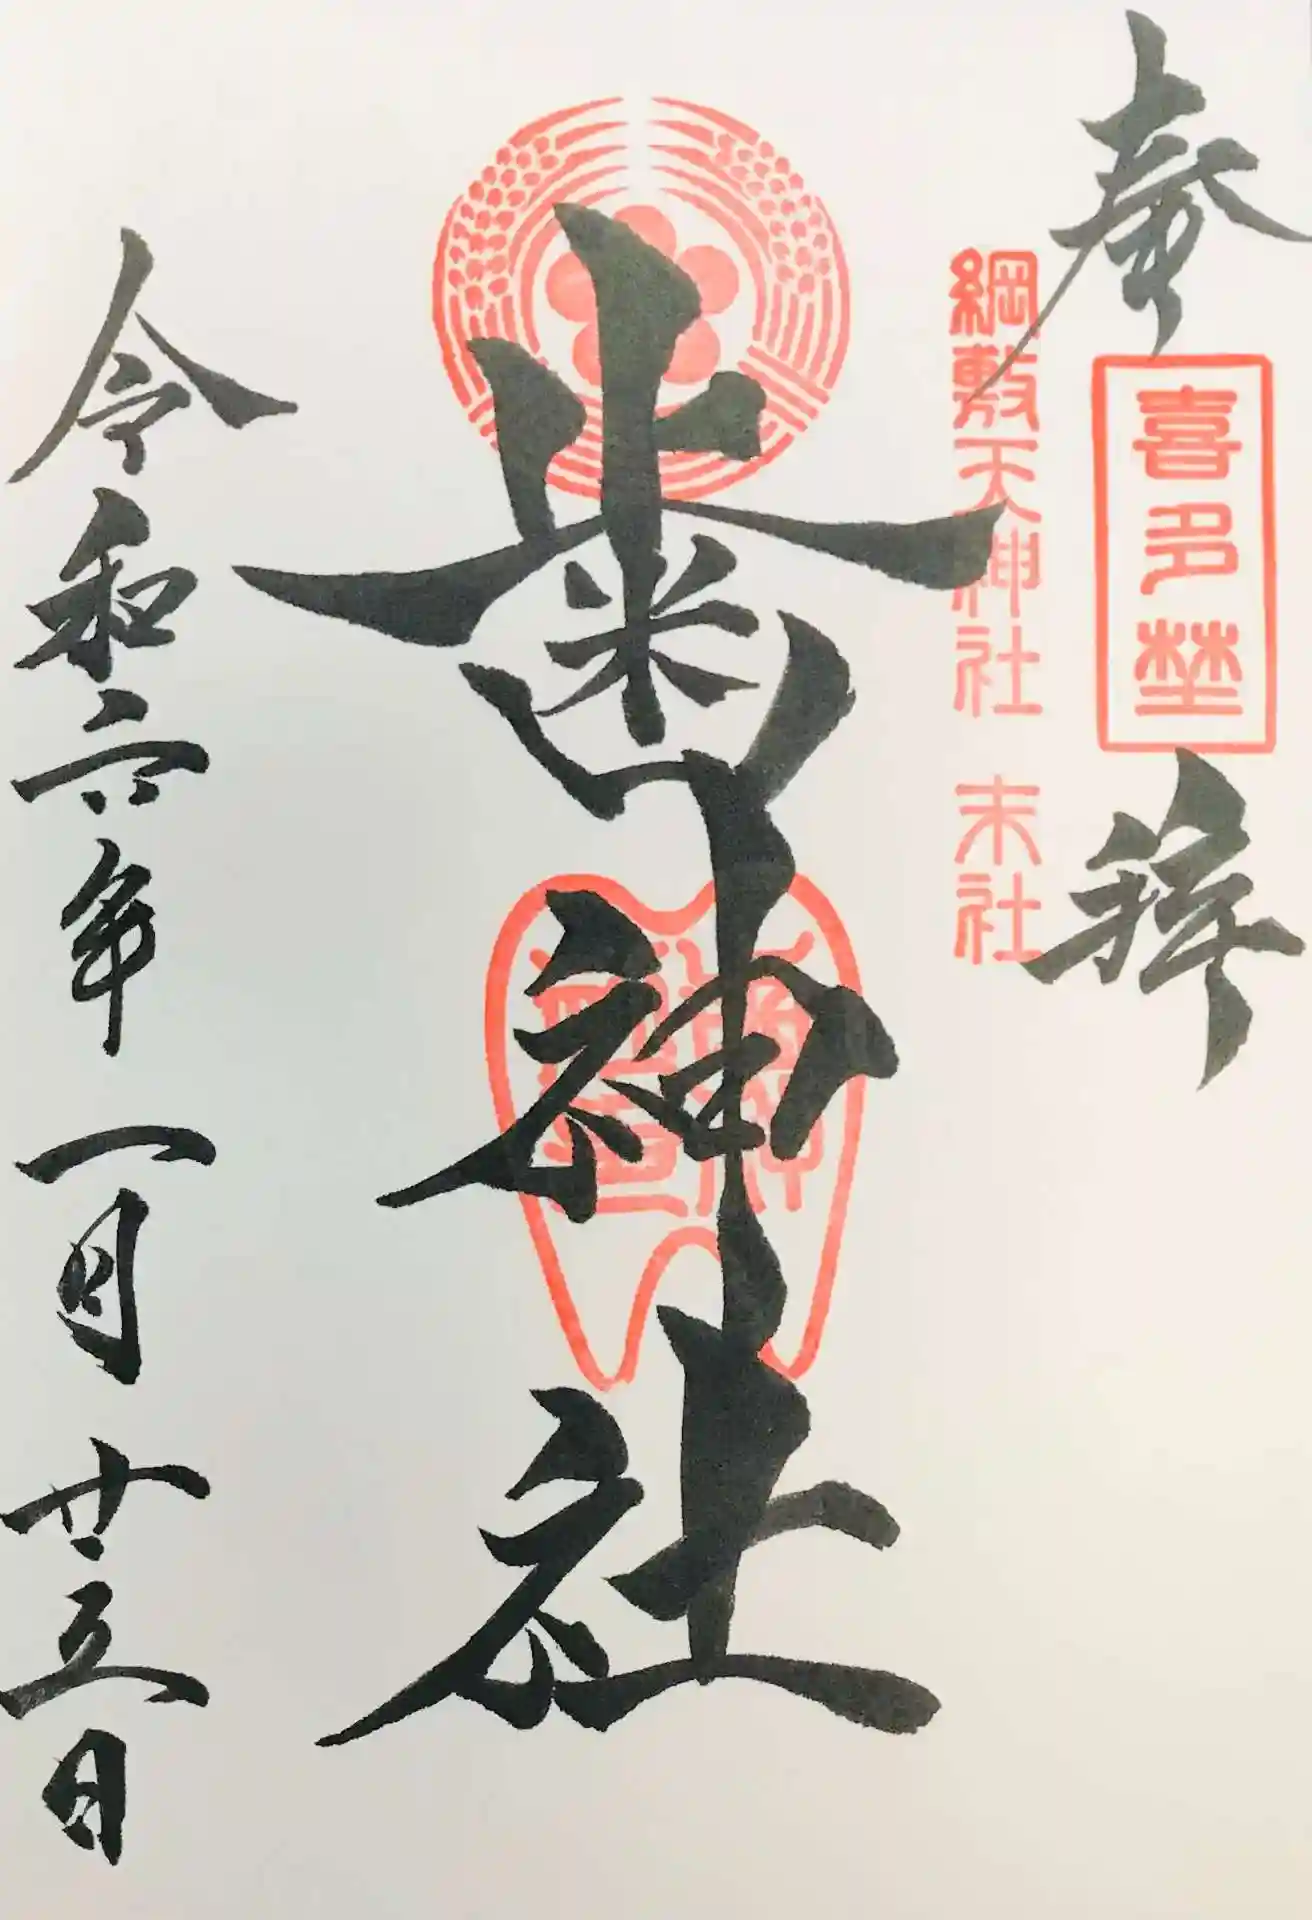 奉拝
喜多埜
綱敷天神社 末社
歯神社
令和六年一月廿五日